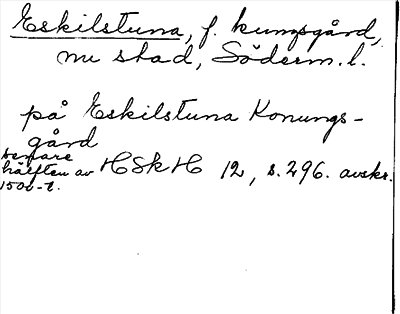 Eskilstuna, f. kungsgård,
nu stad, Söderm. l.
på Eskilstuna Konungs-
gård
senare
hälften av HSkH 12, s. 296. avskr.
1500-t.